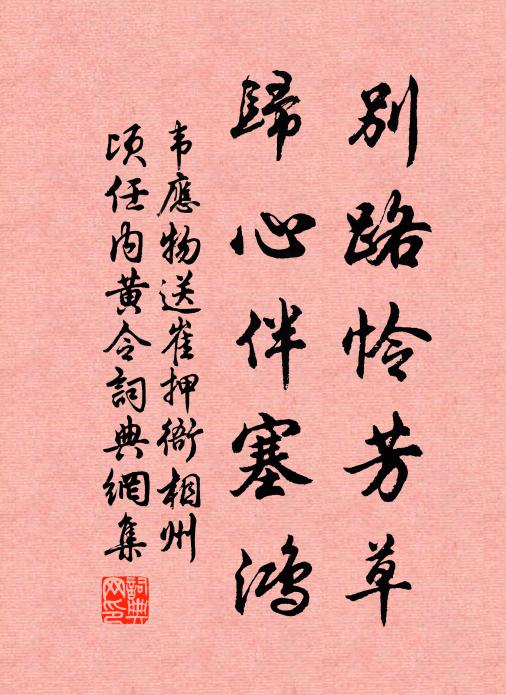 别路怜芳草
歸心伴塞鴻
韦應物送崔押衙相州
頃任内黄令詞典網集
詞典网印